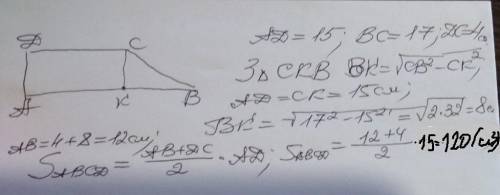 AD = 15; BC = 17; DC = 4
Д C
A K B
З Δ CKB BK = √CB² - CK²;
AD = CK = 15 см;
BK = √17² - 15² = √2·32 = 8
AB = 4 + 8 = 12 см;
S_ABCD = AB + DC / 2 · AD; S_ABCD = 12 + 4 / 2 · 15 = 120 (см²)